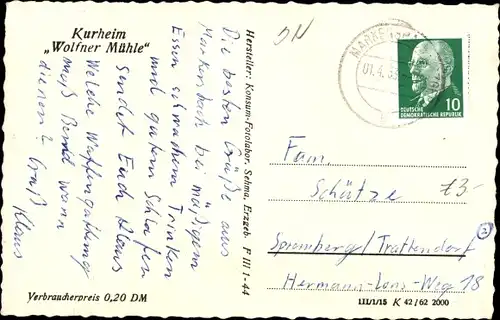 Kurheim
„Wolfner Mühle"
Die besten Grüße aus
Markersbach bei mäßigem
Essen schwachem Trinken
und gutem Schlafen
sendet Euch Klaus
Welche Waffengattung
muß Bernd wann
dienen? Gruß
Klaus
Verbraucherpreis 0,20 DM
Hersteller: Konsum-Fotolabor, Sehma, Erzgeb. P III 1-44
01.4.
DEUTSCHE
DEMOKRATISCHE REPUBLIK
10
Fam.
Schütze
Spremberg/Trattendorf
Hermann-Löns-Weg 18
III/1/15 K 42/62 2000